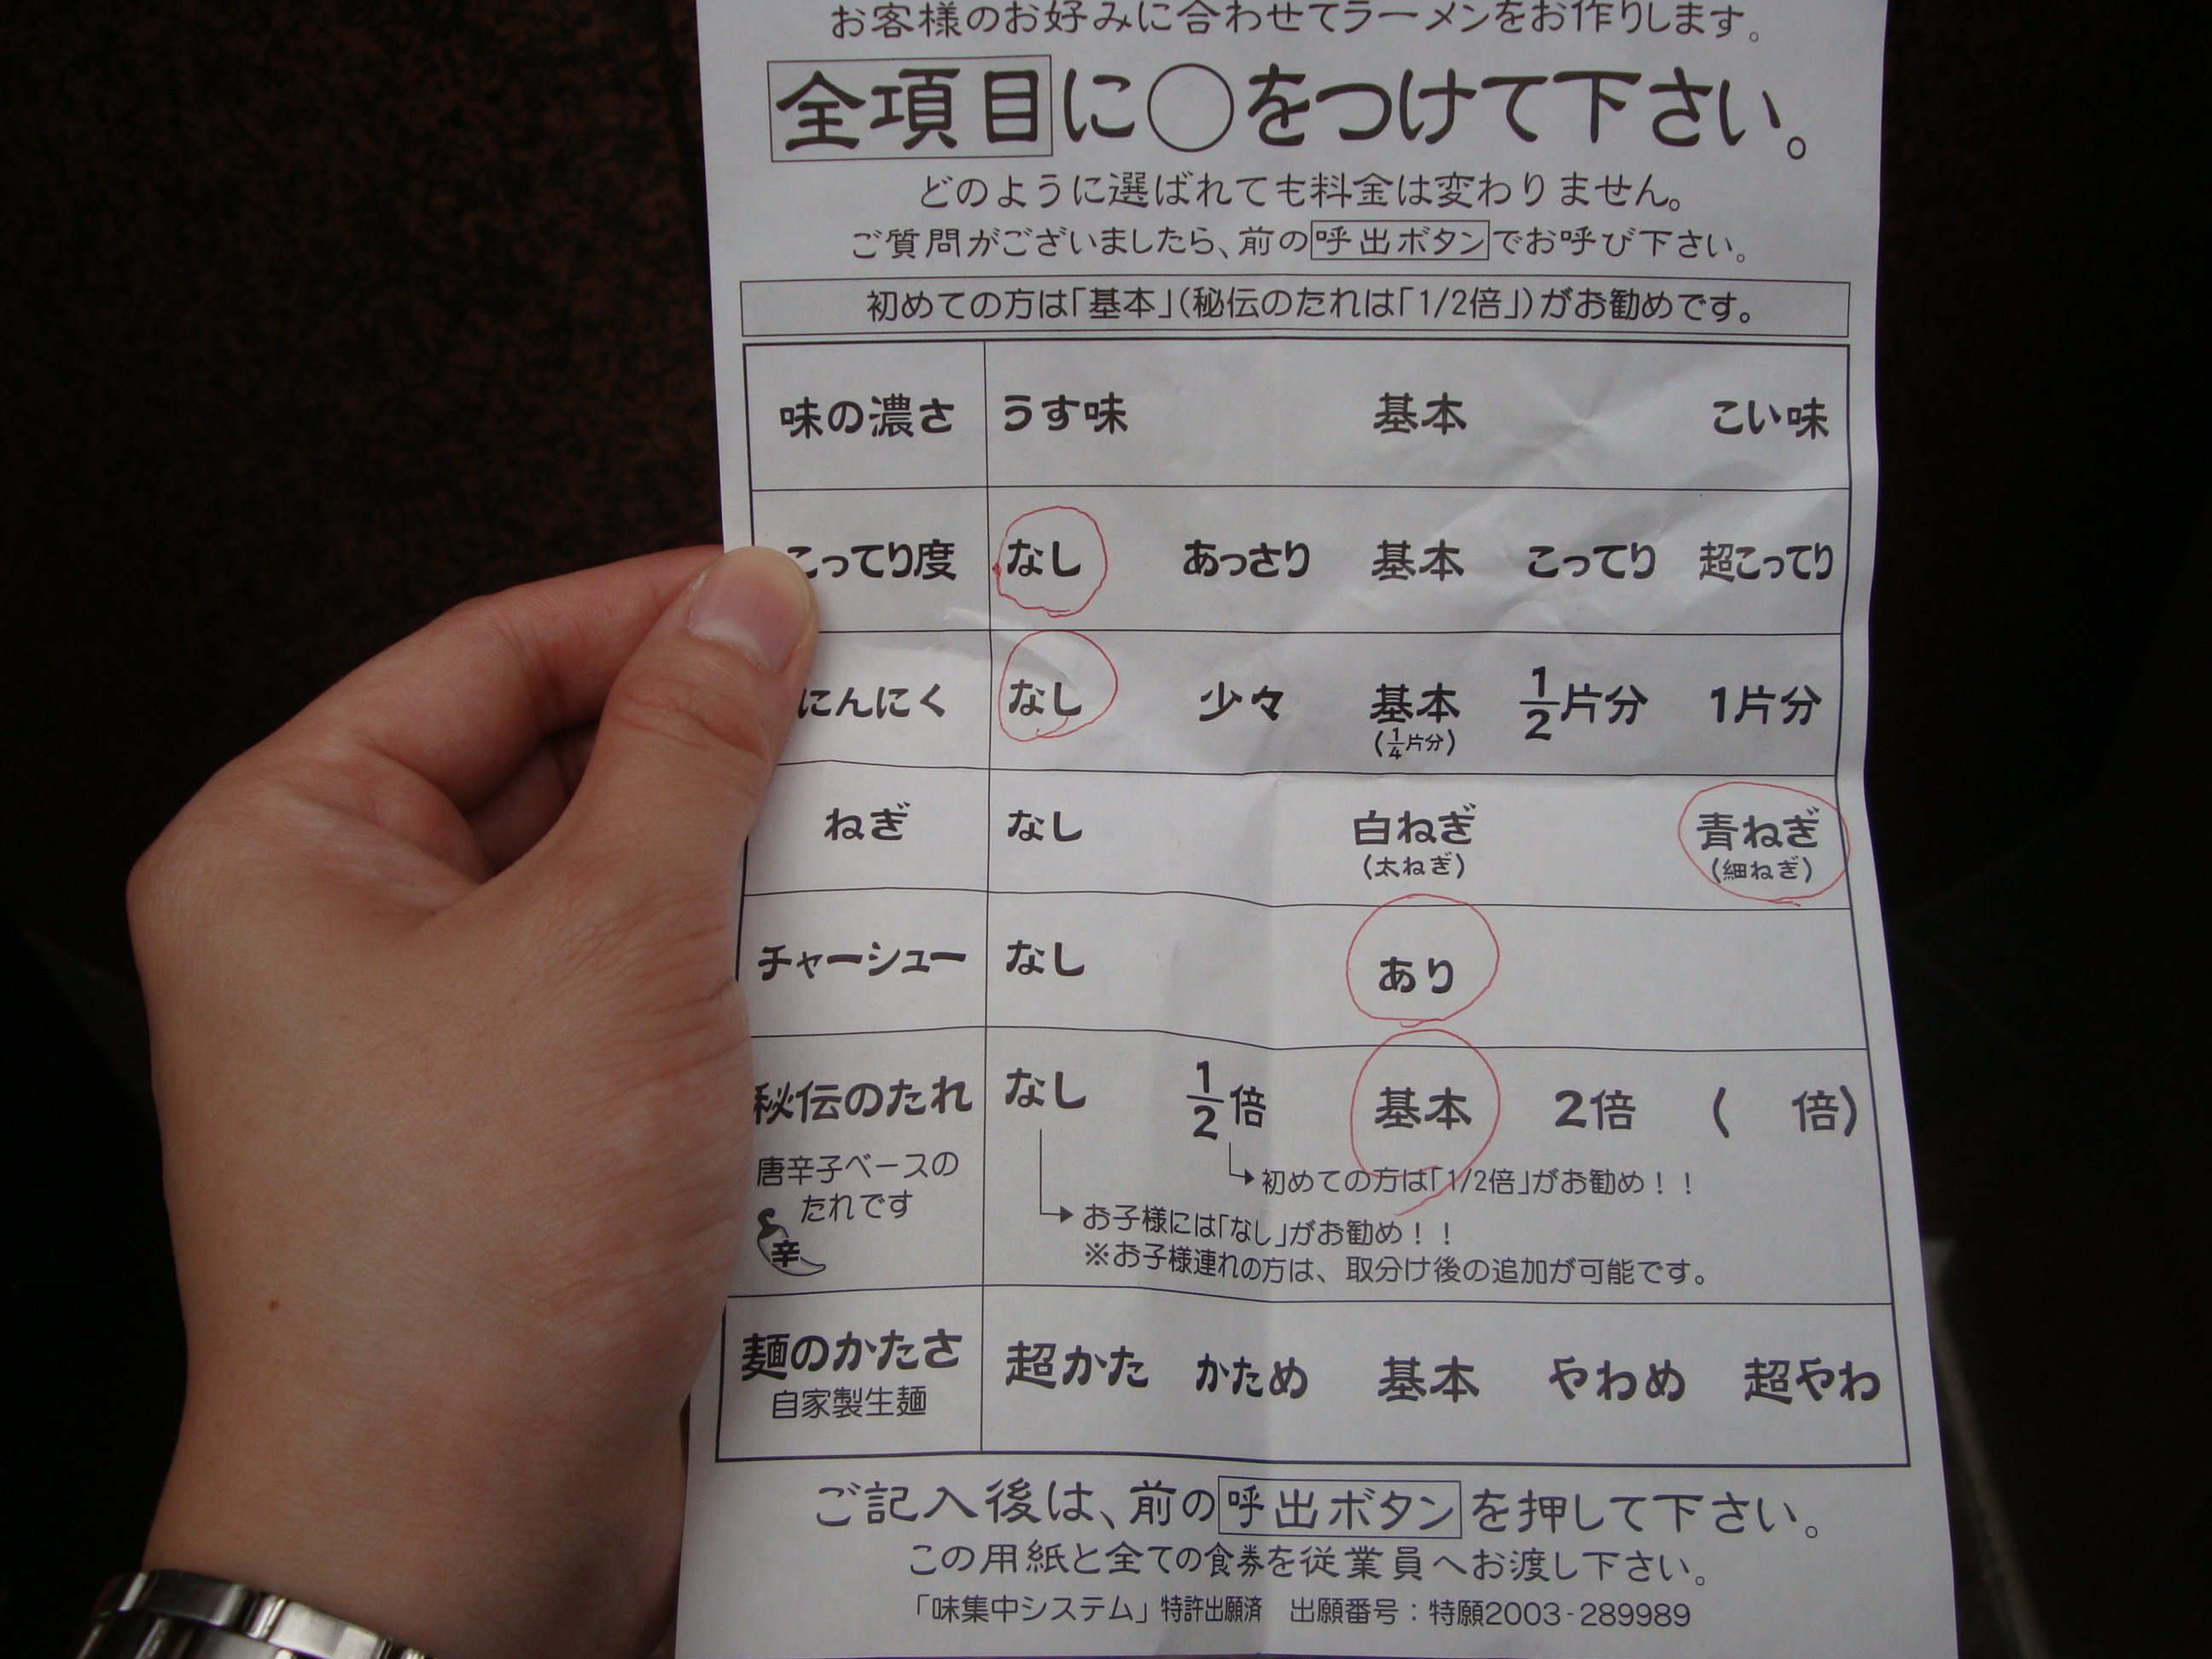 お客様のお好みに合わせてラーメンをお作りします。
全項目に○をつけて下さい。
どのように選ばれても料金は変わりません。
ご質問がございましたら、前の呼出ボタンでお呼び下さい。
初めての方は「基本」(秘伝のたれは「1/2倍」)がお勧めです。
味の濃さ うす味 基本 こい味
こってり度 なし あっさり 基本 こってり 超こってり
にんにく なし 少々 基本 1/2片分 1片分
(1/4片分)
ねぎ なし 白ねぎ 青ねぎ
(太ねぎ) (細ねぎ)
チャーシュー なし あり
秘伝のたれ なし 1/2倍 基本 2倍 ( 倍)
唐辛子ベースの
たれです
辛
初めての方は「1/2倍」がお勧め!!
お子様には「なし」がお勧め!!
※お子様連れの方は、取分け後の追加が可能です。
麺のかたさ 超かた かため 基本 やわめ 超やわ
自家製生麺
ご記入後は、前の呼出ボタンを押して下さい。
この用紙と全ての食券を従業員へお渡し下さい。
「味集中システム」特許出願済 出願番号:特願2003-289989